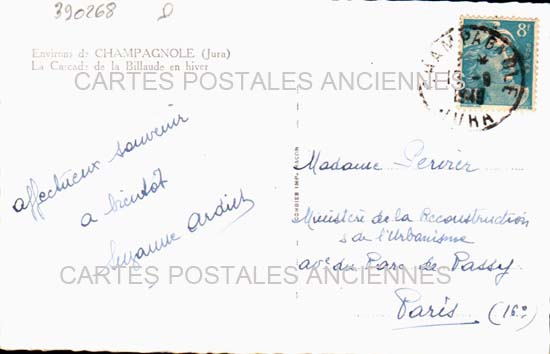 390268
Environs de CHAMPAGNOLE (Jura)
La Cascade de la Billaude en hiver
CARTES POSTALES ANCIENNES
8f
CHAMPAGNOLE
JURA
affectueux souvenir
a bientôt
Suzanne
COMBIER IMP. MACON
Madame Perrier
Ministère de la Reconstruction
& de l'Urbanisme
av. du Parc de Passy
CARTES POSTALES ANCIENNES
Paris (16e)